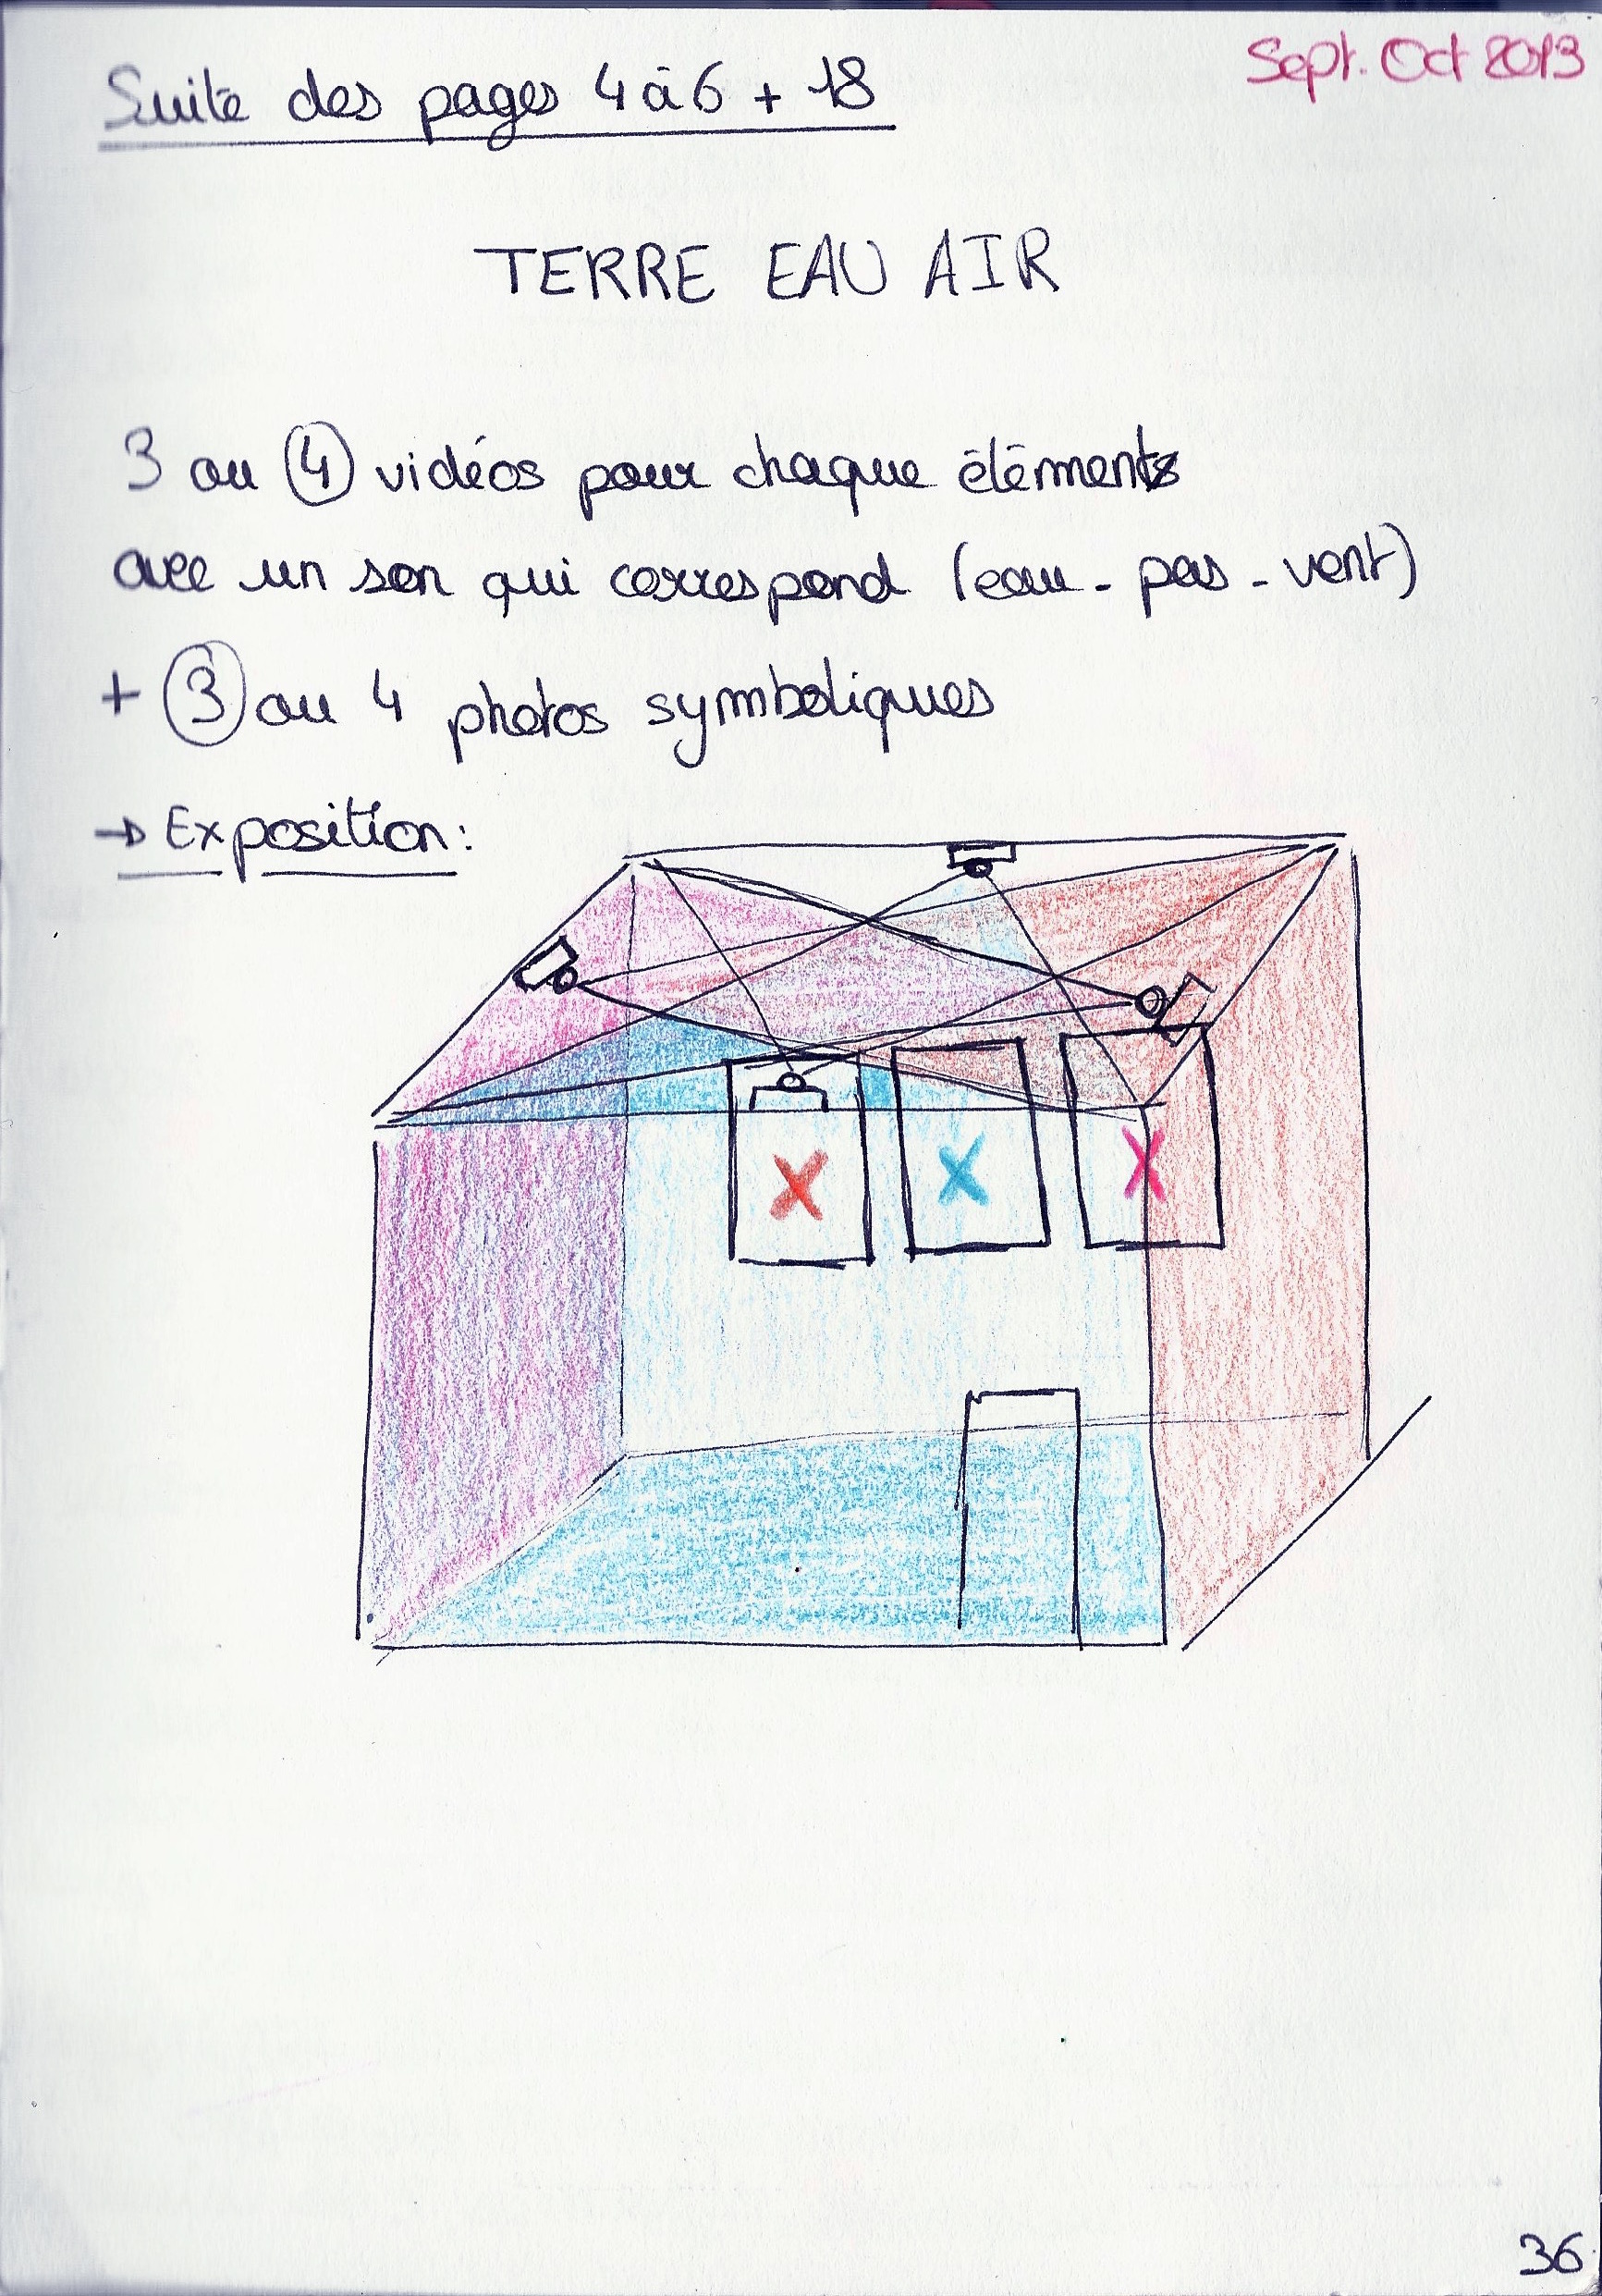 Sept. Oct 2013
Suite des pages 4 à 6 + 18
TERRE EAU AIR
3 ou 4 vidéos pour chaque éléments
avec un son qui correspond (eau - pas - vent)
+ 3 ou 4 photos symboliques
→ Exposition:
X X X
36